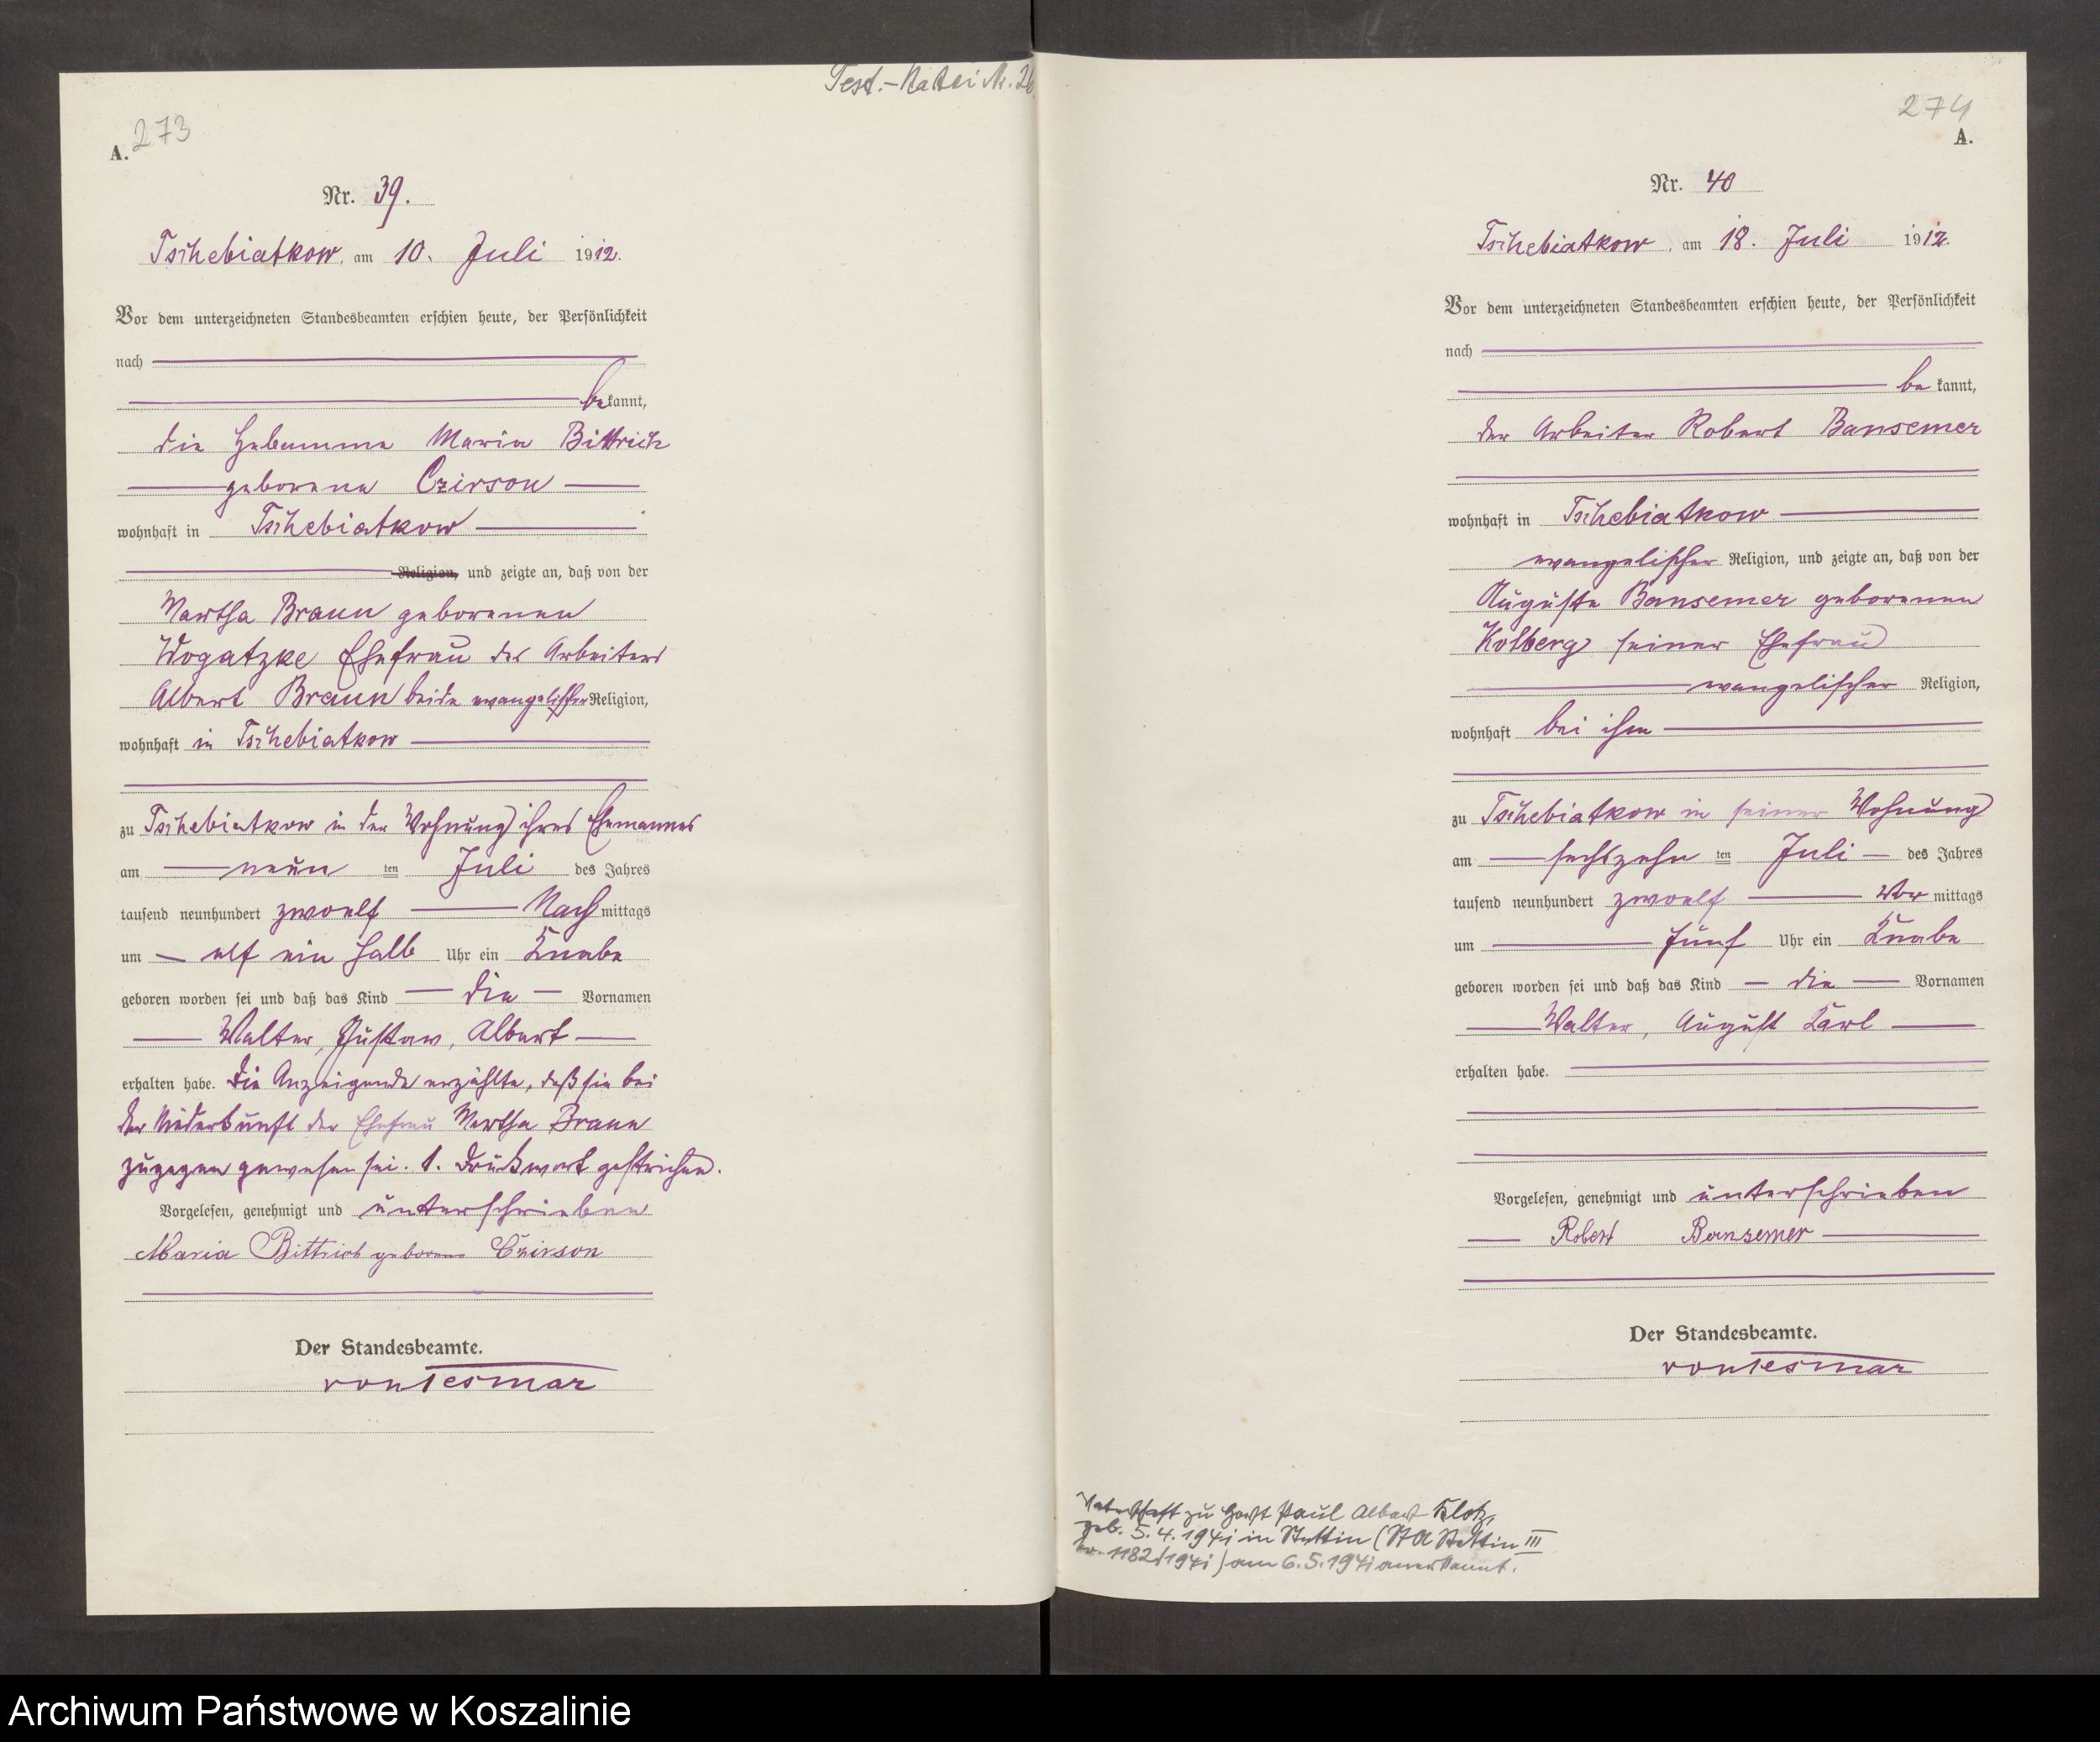 Test.-Kartei Nr. 26
273
A.
Nr. 39.
Tschebiatkow, am 10. Juli 1912.
Vor dem unterzeichneten Standesbeamten erschien heute, der Persönlichkeit
nach
bekannt,
die Hebamme Maria Bittrich
geborene Czirson
wohnhaft in Tschebiatkow
Religion, und zeigte an, daß von der
Martha Braun geborenen
Wogatzke Ehefrau des Arbeiters
Albert Braun beide evangelischer Religion,
wohnhaft in Tschebiatkow
zu Tschebiatkow in der Wohnung ihres Ehemannes
am neun ten Juli des Jahres
tausend neunhundert zwoelf Nach mittags
um elf ein halb Uhr ein Knabe
geboren worden sei und daß das Kind die Vornamen
Walter, Gustav, Albert
erhalten habe. Die Anzeigende erzählte, daß sie bei
der Niederkunft der Ehefrau Martha Braun
zugegen gewesen sei. 1. Druckwort gestrichen.
Vorgelesen, genehmigt und unterschrieben
Maria Bittrich geborene Czirson
Der Standesbeamte.
von Tesmar
274
A.
Nr. 40
Tschebiatkow, am 18. Juli 1912.
Vor dem unterzeichneten Standesbeamten erschien heute, der Persönlichkeit
nach
be kannt,
der Arbeiter Robert Bansemer
wohnhaft in Tschebiatkow
evangelischer Religion, und zeigte an, daß von der
Auguste Bansemer geborenen
Kolberg seiner Ehefrau
evangelischer Religion,
wohnhaft bei ihm
zu Tschebiatkow in seiner Wohnung
am sechszehn ten Juli des Jahres
tausend neunhundert zwoelf Vor mittags
um fünf Uhr ein Knabe
geboren worden sei und daß das Kind die Vornamen
Walter, August Karl
erhalten habe.
Vorgelesen, genehmigt und unterschrieben
Robert Bansemer
Der Standesbeamte.
von Tesmar
Vaterschaft zu Horst Paul Albert Klotz,
geb. 5.4.1941 in Stettin (St A Stettin III
Nr. 1182/1941) am 6.5.1941 anerkannt.
Archiwum Państwowe w Koszalinie